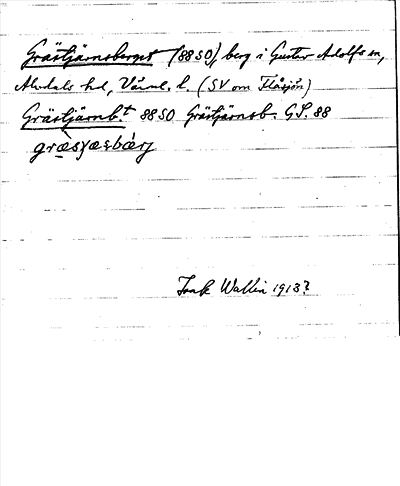 Grästjärnsberget (88 SO), berg i Gustav Adolfs sn,
Älvdals hd, Värml. l. (SV om Flåsjön)
Grästjärnb.t 88 SO Grästjärnsb. GS. 88
græsʃæsbærj
Wallin 1913?